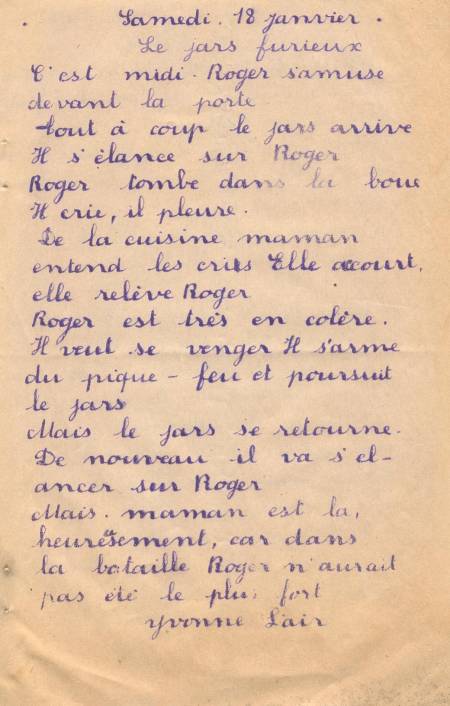 Samedi. 18 janvier.
Le jars furieux
C'est midi. Roger s'amuse
devant la porte
tout à coup le jars arrive
Il s'élance sur Roger
Roger tombe dans la boue
Il crie, il pleure.
De la cuisine maman
entend les cris Elle accourt,
elle relève Roger
Roger est très en colère.
Il veut se venger Il s'arme
du pique-feu et poursuit
le jars
Mais le jars se retourne.
De nouveau il va s'el-
ancer sur Roger
Mais. maman est la,
heureusement, car dans
la bataille Roger n'aurait
pas été le plus fort
Yvonne Lair